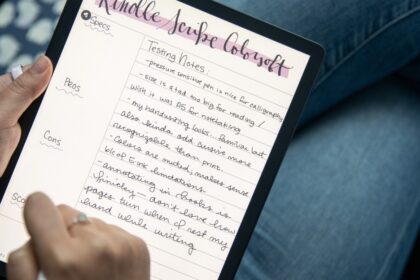 Kindle Scribe Colorsoft
Specs
Pros
Cons
Testing Notes:
- pressure sensitive pen is nice for calligraphy
- size is a tad too big for reading /
wish it was A5 for notetaking
- my handwriting looks... familiar but
also kinda odd cursive more
recognizable than print.
- Colors are muted, makes sense
b/c of E ink limitations
- annotating in books is
finicky - don't love how
pages turn when I rest my
hand while writing